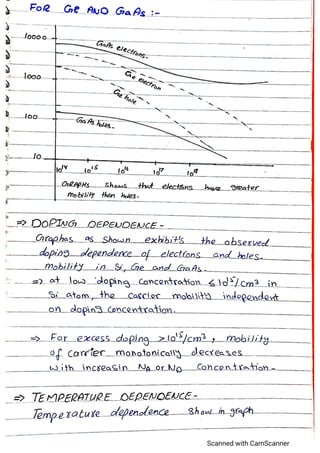 FOR Ge AND GaAs :-
10000
GaAs electrons.
1000
Ge electron
Ge hole
100
GaAs holes.
10
10^14 10^15 10^16 10^17 10^18
GRAPHS shows that electrons have greater
mobility then holes.
=> DOPING DEPENDENCE -
Graphas as shown exhibit's the observed
doping dependence of electrons and holes.
mobility in Si, Ge and GaAs.
=> at low doping concentration ≤ 10^15/cm^3 in
Si atom, the carrier mobility independent
on doping concentration.
=> For excess doping >10^15/cm^3, mobility
of carrier monotonically decreases
with increasin NA or ND concentration.
=> TEMPERATURE DEPENDENCE -
Temperature dependence show in graph
Scanned with CamScanner